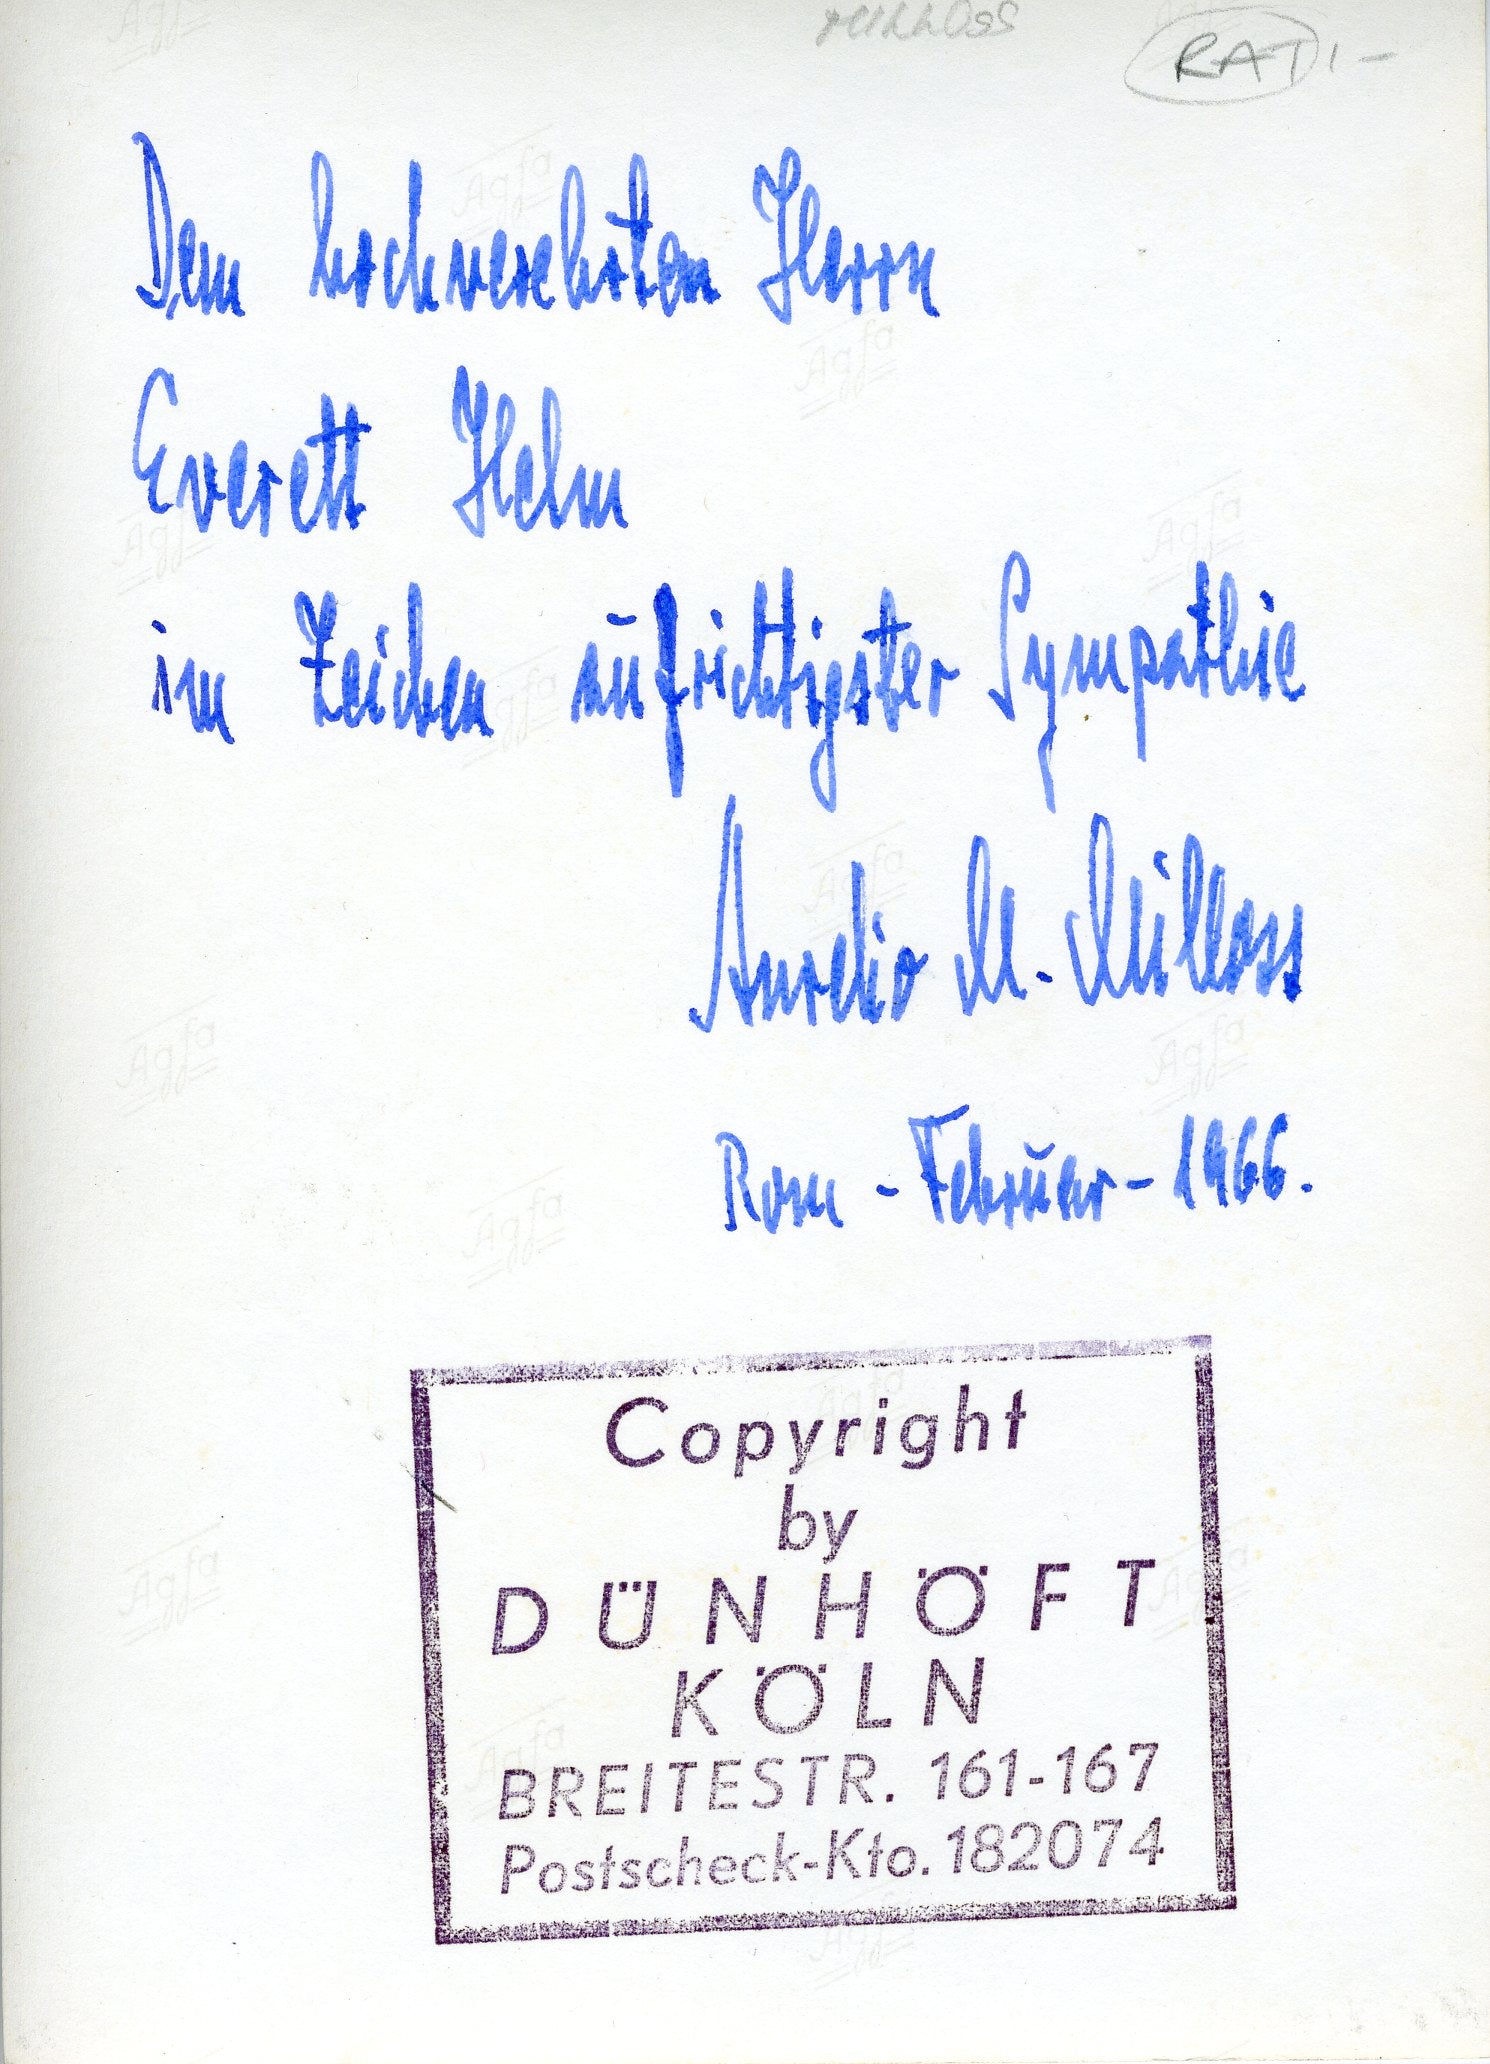 RATI-
Dem hochverehrten Herrn
Everett Helm
im Zeichen aufrichtigster Sympathie
Aurelio M. Milloss
Rom - Februar - 1966.
Copyright
by
DÜNHÖFT
KÖLN
BREITESTR. 161-167
Postscheck-Kto. 182074
Agfa